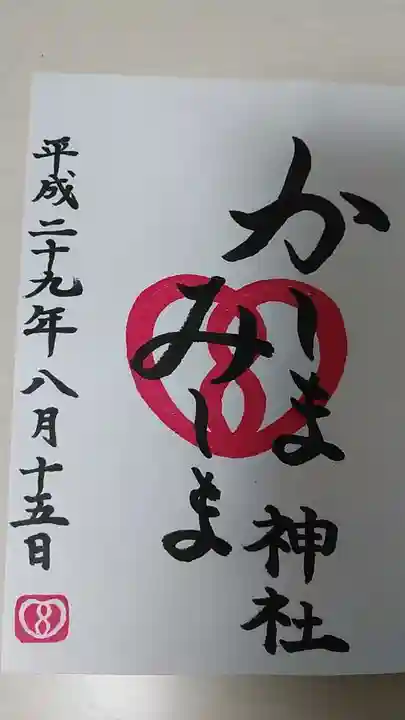 かしま神社
みしま
平成二十九年八月十五日